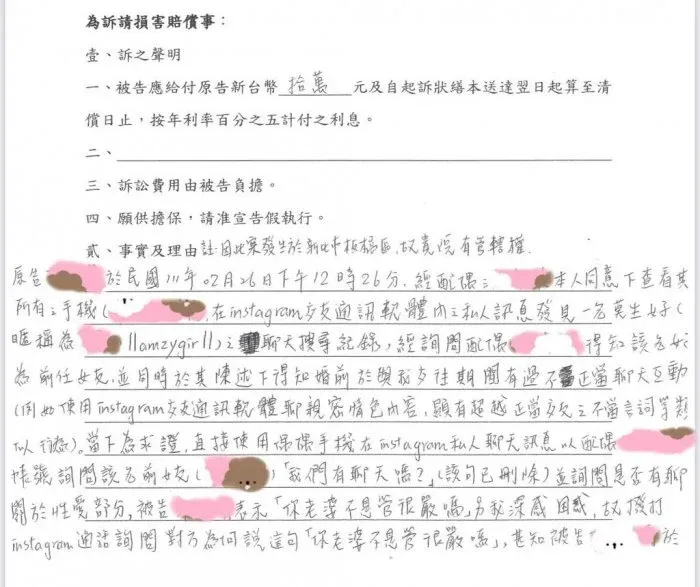 為訴請損害賠償事：
壹、訴之聲明
一、被告應給付原告新台幣 拾萬 元及自起訴狀繕本送達翌日起算至清
償日止，按年利率百分之五計付之利息。
二、
三、訴訟費用由被告負擔。
四、願供擔保，請准宣告假執行。
貳、事實及理由 註:因此案發生於新北市板橋區,故貴院有管轄權.
原告 於民國111年02月26日下午12時26分.經配偶之 本人同意下查看其
所有之手機( 在instagram交友通訊軟體內之私人訊息發見一名莫生女子(
暱稱為 llamzygirl)之 聊天搜尋紀錄,經詢問配偶 得知該名女
為前任女友,並同時於其陳述下得知婚前於與我交往期間有過不 正當聊天互動
(例如使用instagram交友通訊軟體聊親密情色內容,顯有超越正當交友之不當言詞等類
似行為)。當下為求證,直接使用偶偶手機在instagram私人聊天訊息以配偶
帳號詢問該名前女友( )「我們有聊天嗎?」(該句已刪除)並詢問是否有聊
關於性愛部分,被告 表示「你老婆不是管很嚴嗎」另我深感困惑,故撥打
instagram通話詢問對方為何說這句「你老婆不是管很嚴嗎」,甚知被告 於